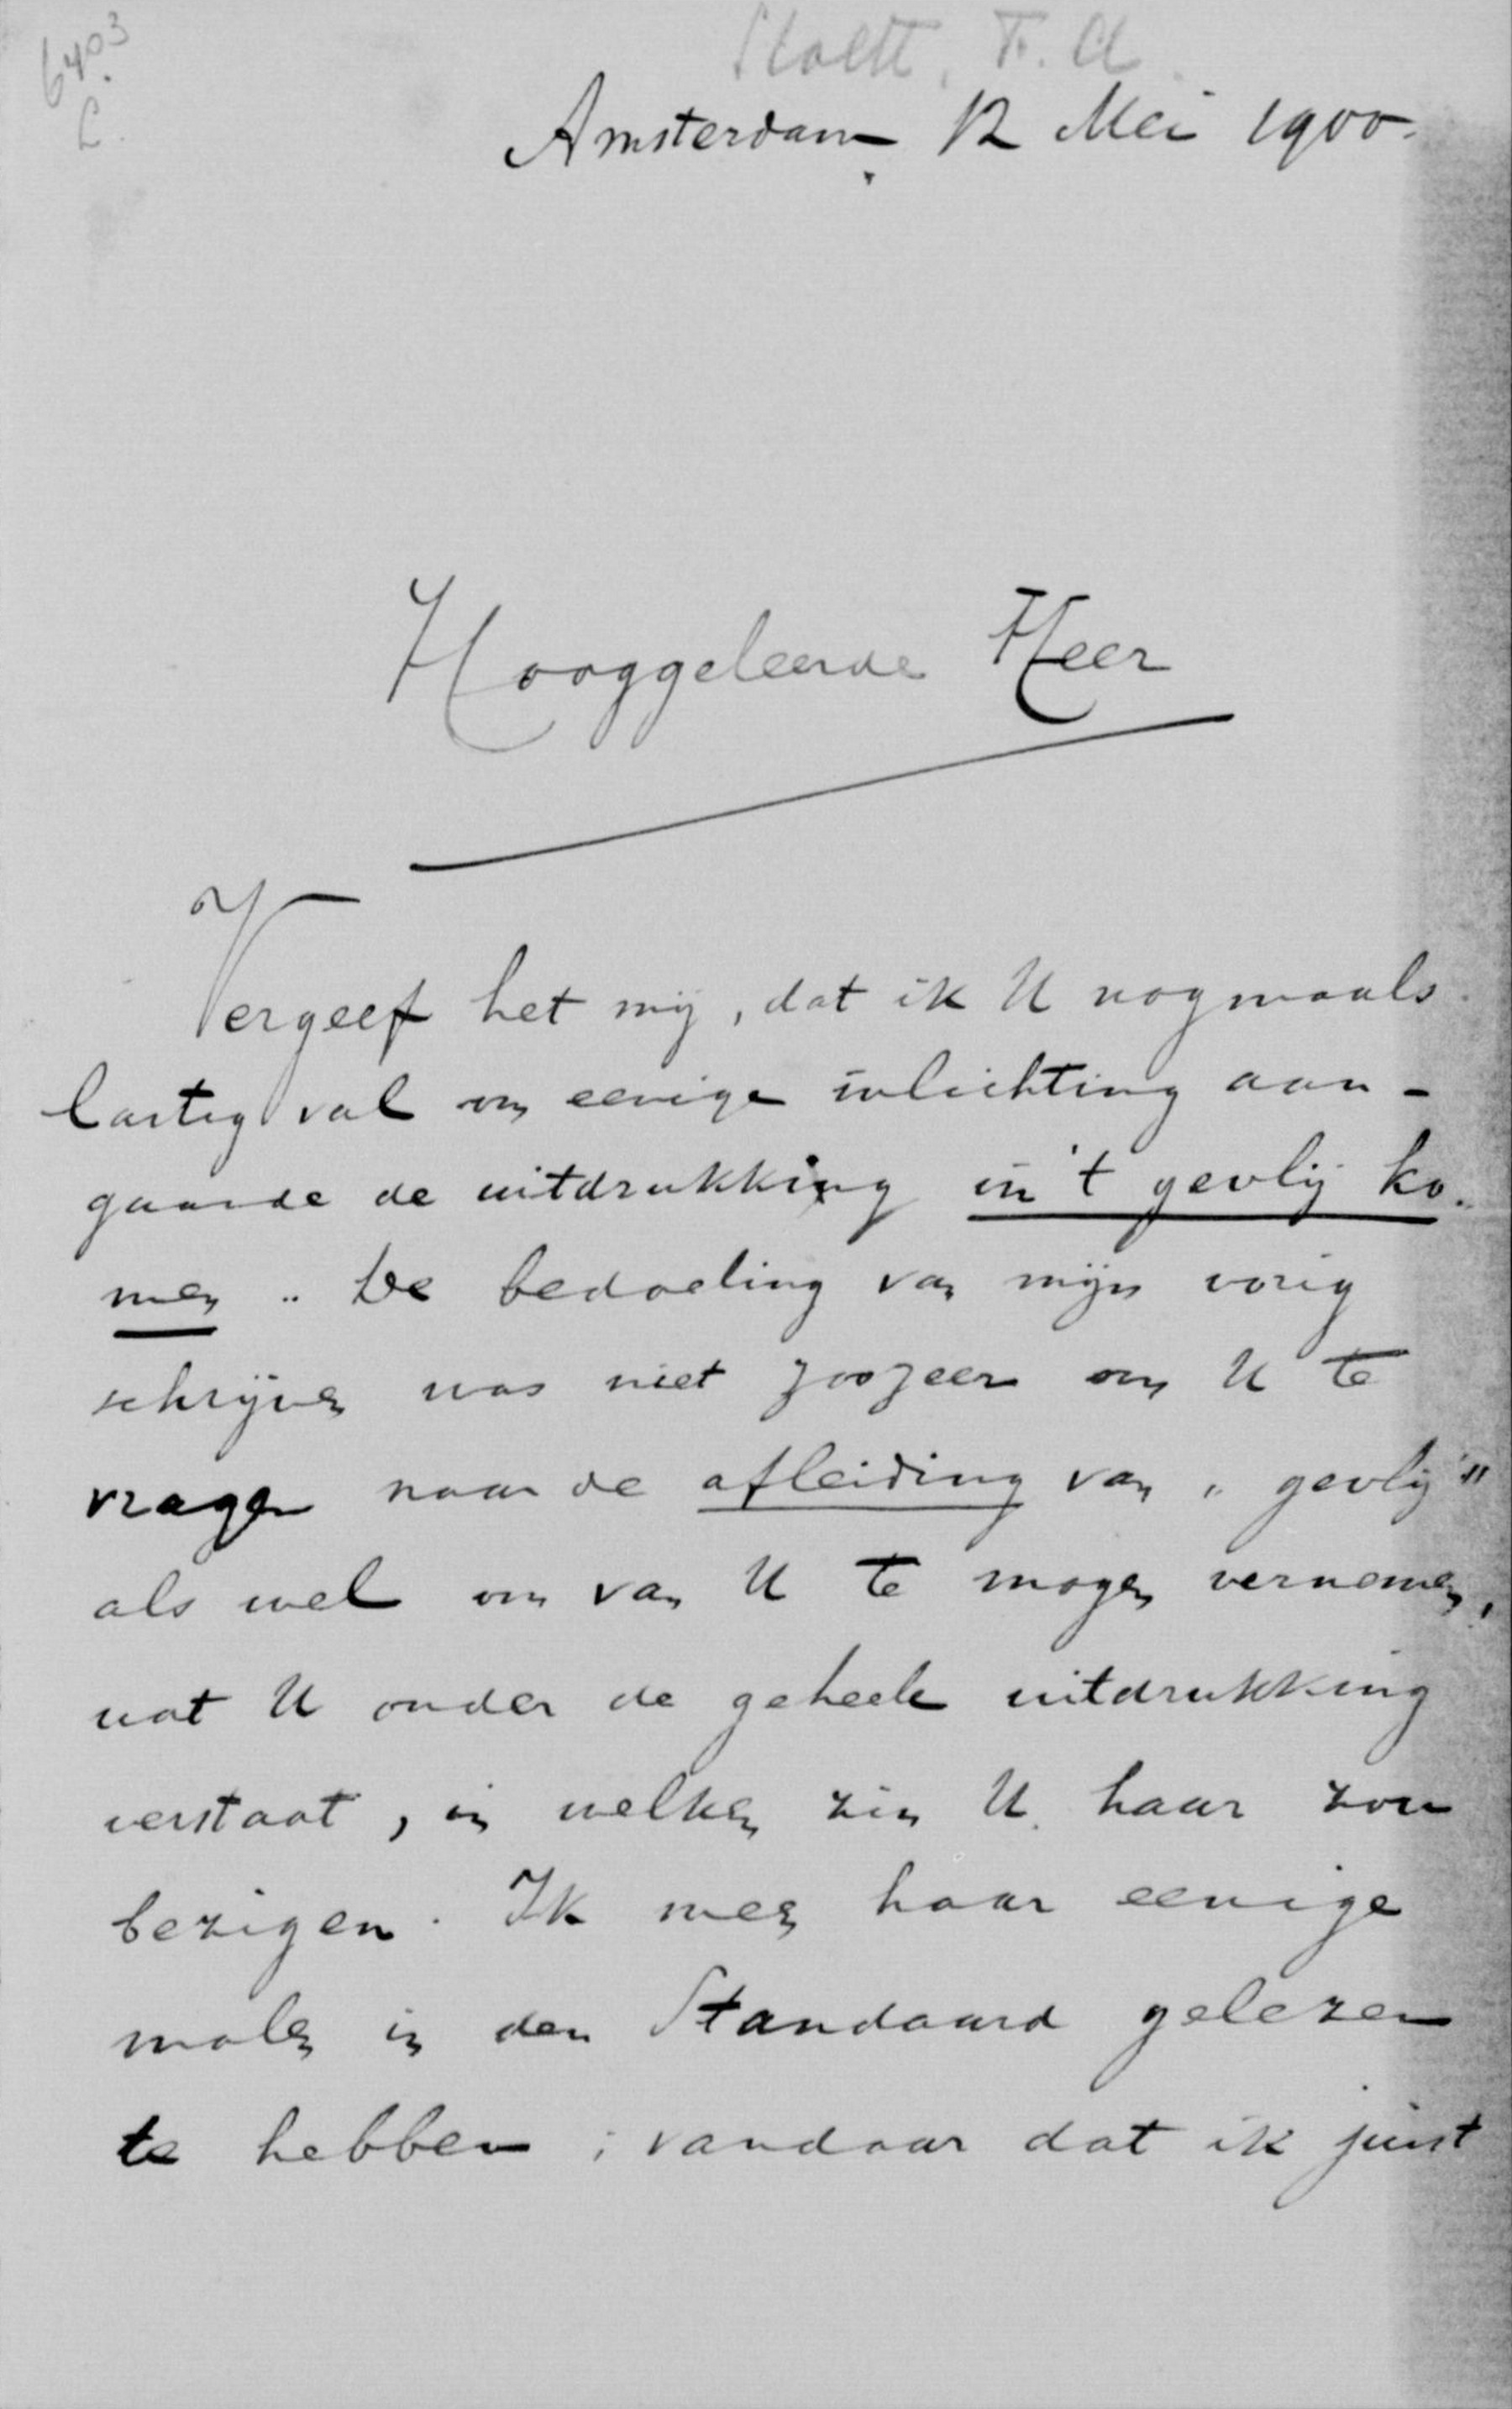 6403
L.
Stoett, F. A.
Amsterdam 12 Mei 1900.
Hooggeleerde Heer
Vergeef het mij, dat ik U nogmaals
lastig val om eenige inlichting aan-
gaande de uitdrukking in 't gevlij ko-
men. De bedoeling van mijn vorig
schrijven was niet zoozeer om U te
vragen naar de afleiding van "gevlij"
als wel om van U te mogen vernemen,
wat U onder de geheele uitdrukking
verstaat, in welken zin U haar zou
bezigen. Ik meen haar eenige
malen in den Standaard gelezen
te hebben; vandaar dat ik juist